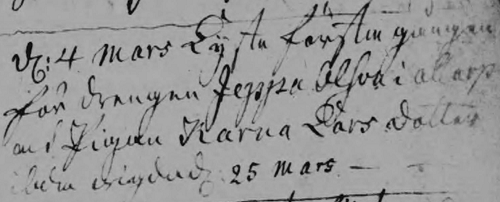 d: 4 Mars Lyste förstie gången
för drengen Jeppa Olson i allarp
och Pigan Karna Lars dotter
ibdm vigde d: 25 Mars —